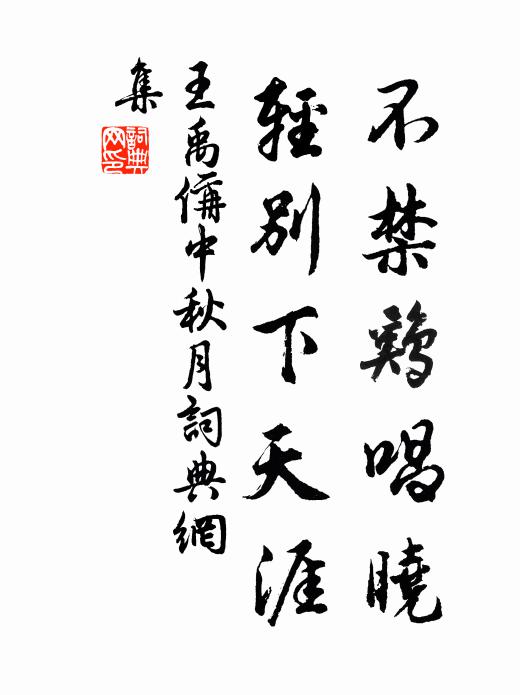 不禁鷄唱曉
輕別下天涯
王禹偁中秋月詞典網
集
詞典
网印